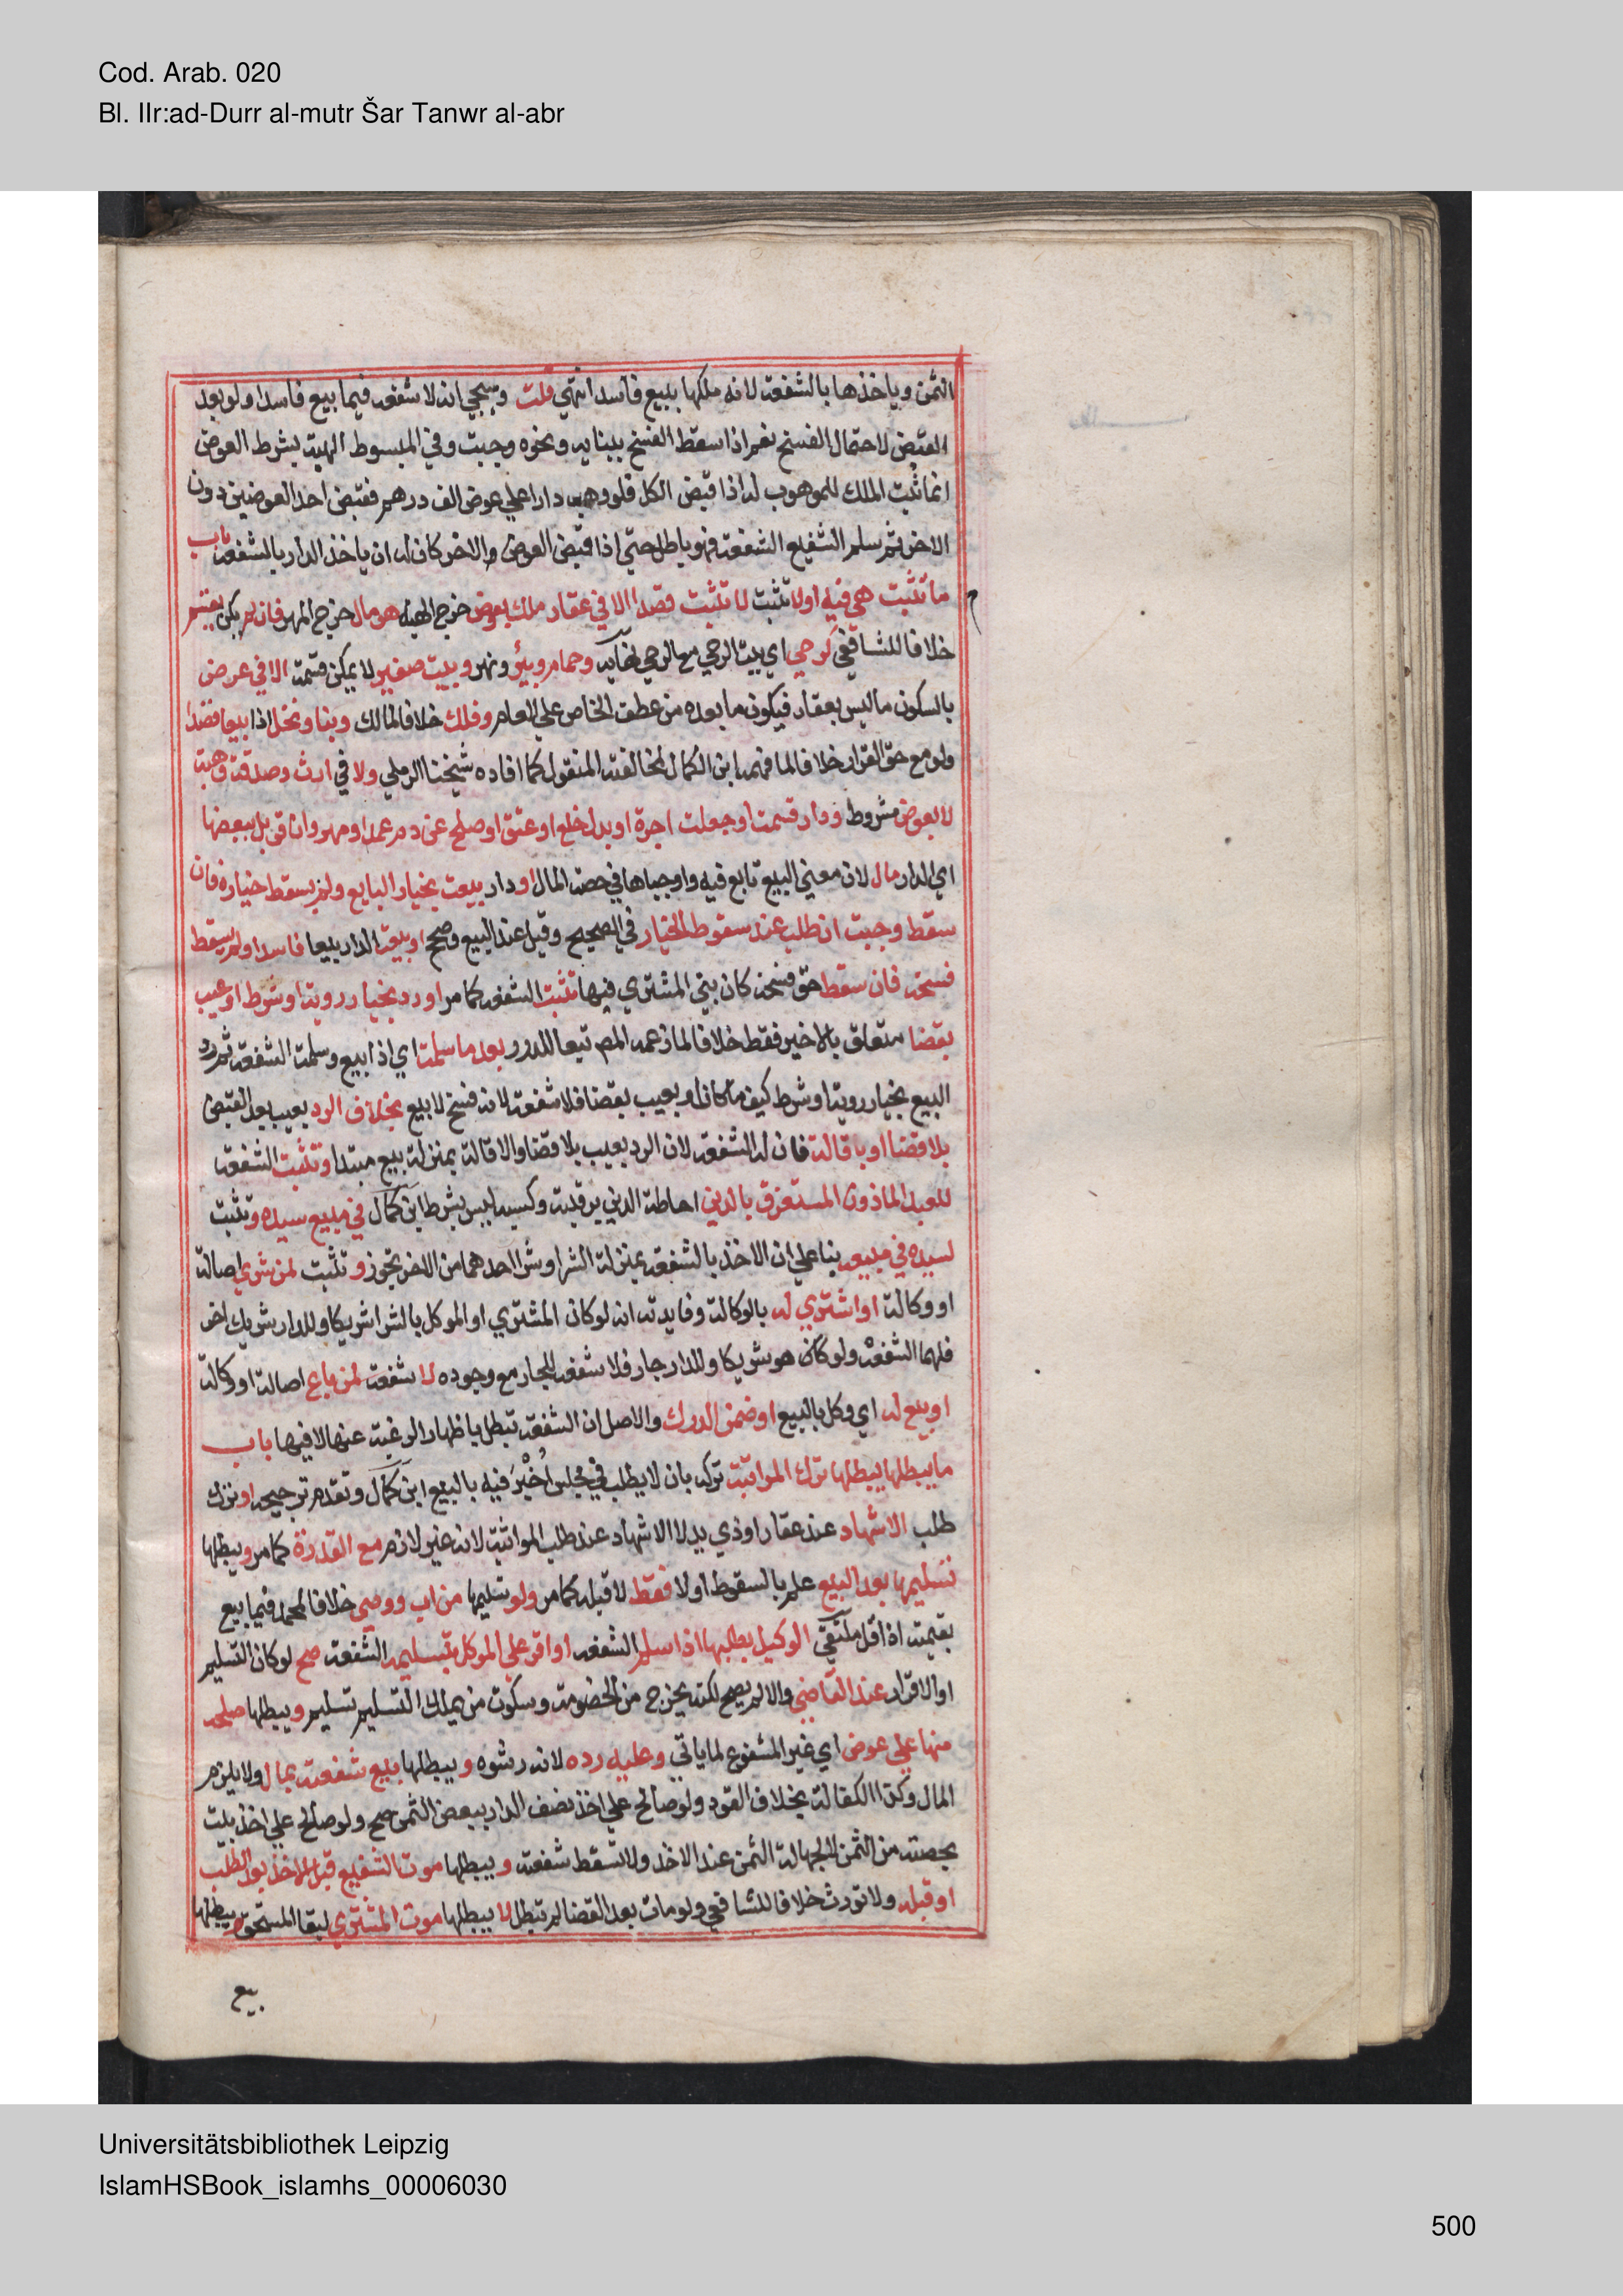 Cod. Arab. 020
Bl. IIr:ad-Durr al-mutr Šar Tanwr al-abr
الثمن وياخذها بالشفعة لانه ملكها ببيع فاسد انتهي قلت وسيجي انه لا شفعة فيما بيع فاسدا ولو بعد
القبض لاحتمال الفسخ نعم اذا سقط الفسخ ببنايه ونحوه وجبت وفي المبسوط الهبة بشرط العوض
انما تثبت الملك للموهوب له اذا قبض الكل فلو وهب دارا علي عوض الف درهم فقبض احد العوضين دون
الاخر ثم سلم الشفيع الشفعة فهو باطل حتي اذا قبض العوض والاخر كان له ان ياخذ الدار بالشفعة باب
ما تثبت هي فيه اولا تثبت لا تثبت قصدا الا في عقار ملك بعوض خرج الهبة هو مال خرج المهر فان لم يكن يقسم
خلافا للشافعي كرحي اي بيت الرحي مع الرحي نهايه وحمام وبئر ونهر وبيت صغير لا يمكن قسمته الا في عرض
بالسكون ما ليس بعقار فيكون ما بعده من عطف الخاص علي العام وفلك خلافا لمالك وبنا ونخل اذا بيعا قصدا
ولو مع حق القرار خلافا لما فهمه ابن الكمال لمخالفته المنقول كما افاده شيخنا الرملي ولا في ارث وصدقة وهبة
لا بعوض مشروط ودار قسمت او جعلت اجرة او بدل خلع او عتق او صلح عن دم عمد او مهر وان قوبل ببعضها
اي الدار مال لان معني البيع تابع فيه واوجباها في حصة المال او دار بيعت بخيار البايع ولم يسقط خياره فان
سقط وجبت ان طلب عند سقوط الخيار في الصحيح وقيل عند البيع وصح او بيعت الدار بيعا فاسدا ولم يسقط
فسخه فان سقط حق فسخه كان بني المشتري فيها تثبت الشفعة كما مر او رد بخيار روية او شرط او عيب
بقضا متعلق بالاخير فقط خلافا لما زعمه المص تبعا للدرر بعد ما سلمت اي اذا بيع وسلمت الشفعة ثم رد
البيع بخيار روية او شرط كيف ما كان او بعيب بقضا فلا شفعة لانه فسخ لا بيع بخلاف الرد بعيب بعد القبض
بلا قضا او باقالة فان له الشفعة لان الرد بعيب بلا قضا والاقالة بمنزلة بيع مبتدا وتثبت الشفعة
للعبد الماذون المستغرق بالدين احاطة الدين برقبته وكسبه ليس بشرط ابن كمال في مبيع سيده وتثبت
لسيده في مبيعه بنا علي ان الاخذ بالشفعة بمنزلة الشرا وشرا احدهما من الاخر يجوز وتثبت لمن شري اصالة
او وكالة او اشتري له بالوكالة وفايدته انه لو كان المشتري او الموكل بالشرا شريكا وللدار شريك اخر
فلهما الشفعة ولو كان هو شريكا وللدار جار فلا شفعة للجار مع وجوده لا شفعة لمن باع اصالة او وكالة
او بيع له اي وكل بالبيع او ضمن الدرك والاصل ان الشفعة تبطل باظهار الرغبة عنها لا فيها باب
ما يبطلها يبطلها ترك المواثبة تركه بان لا يطلب في مجلس اُخْبِرَ فيه بالبيع ابن كمال وتقدم ترجيحه او ترك
طلب الاشهاد عند عقار او ذي يد لا الاشهاد عند طلب المواثبة لانه غير لازم مع القدرة كما مر ويبطلها
تسليمها بعد البيع علم بالسقوط اولا فقط لا قبله كما مر ولو تسليمها من اب ووصي خلافا لمحمد فيما بيع
بقيمته اذ اقل ملتقي الوكيل بطلبها اذا سلم الشفعة او اقر علي الموكل بتسليمه الشفعة صح لو كان التسليم
او الاقرار عند القاضي والا لم يصح لكنه يخرج من الخصومة وسكوت من يملك التسليم تسليم ويبطلها صلحه
منها علي عوض اي غير المشفوع لما ياتي وعليه رده لانه رشوه ويبطلها بيع شفعته بمال ولا يلزم
المال وكذا الكفالة بخلاف القود ولو صالح علي اخذ نصف الدار ببعض الثمن صح ولو صالح علي اخذ بيت
بحصته من الثمن لا لجهالة الثمن عند الاخذ ولا تسقط شفعته ويبطلها موت الشفيع قبل الاخذ بعد الطلب
او قبله ولا تورث خلافا للشافعي ولو مات بعد القضا لم تبطل لا يبطلها موت المشتري لبقا المستحق ويبطلها
بيع
Universitätsbibliothek Leipzig
IslamHSBook_islamhs_00006030
500